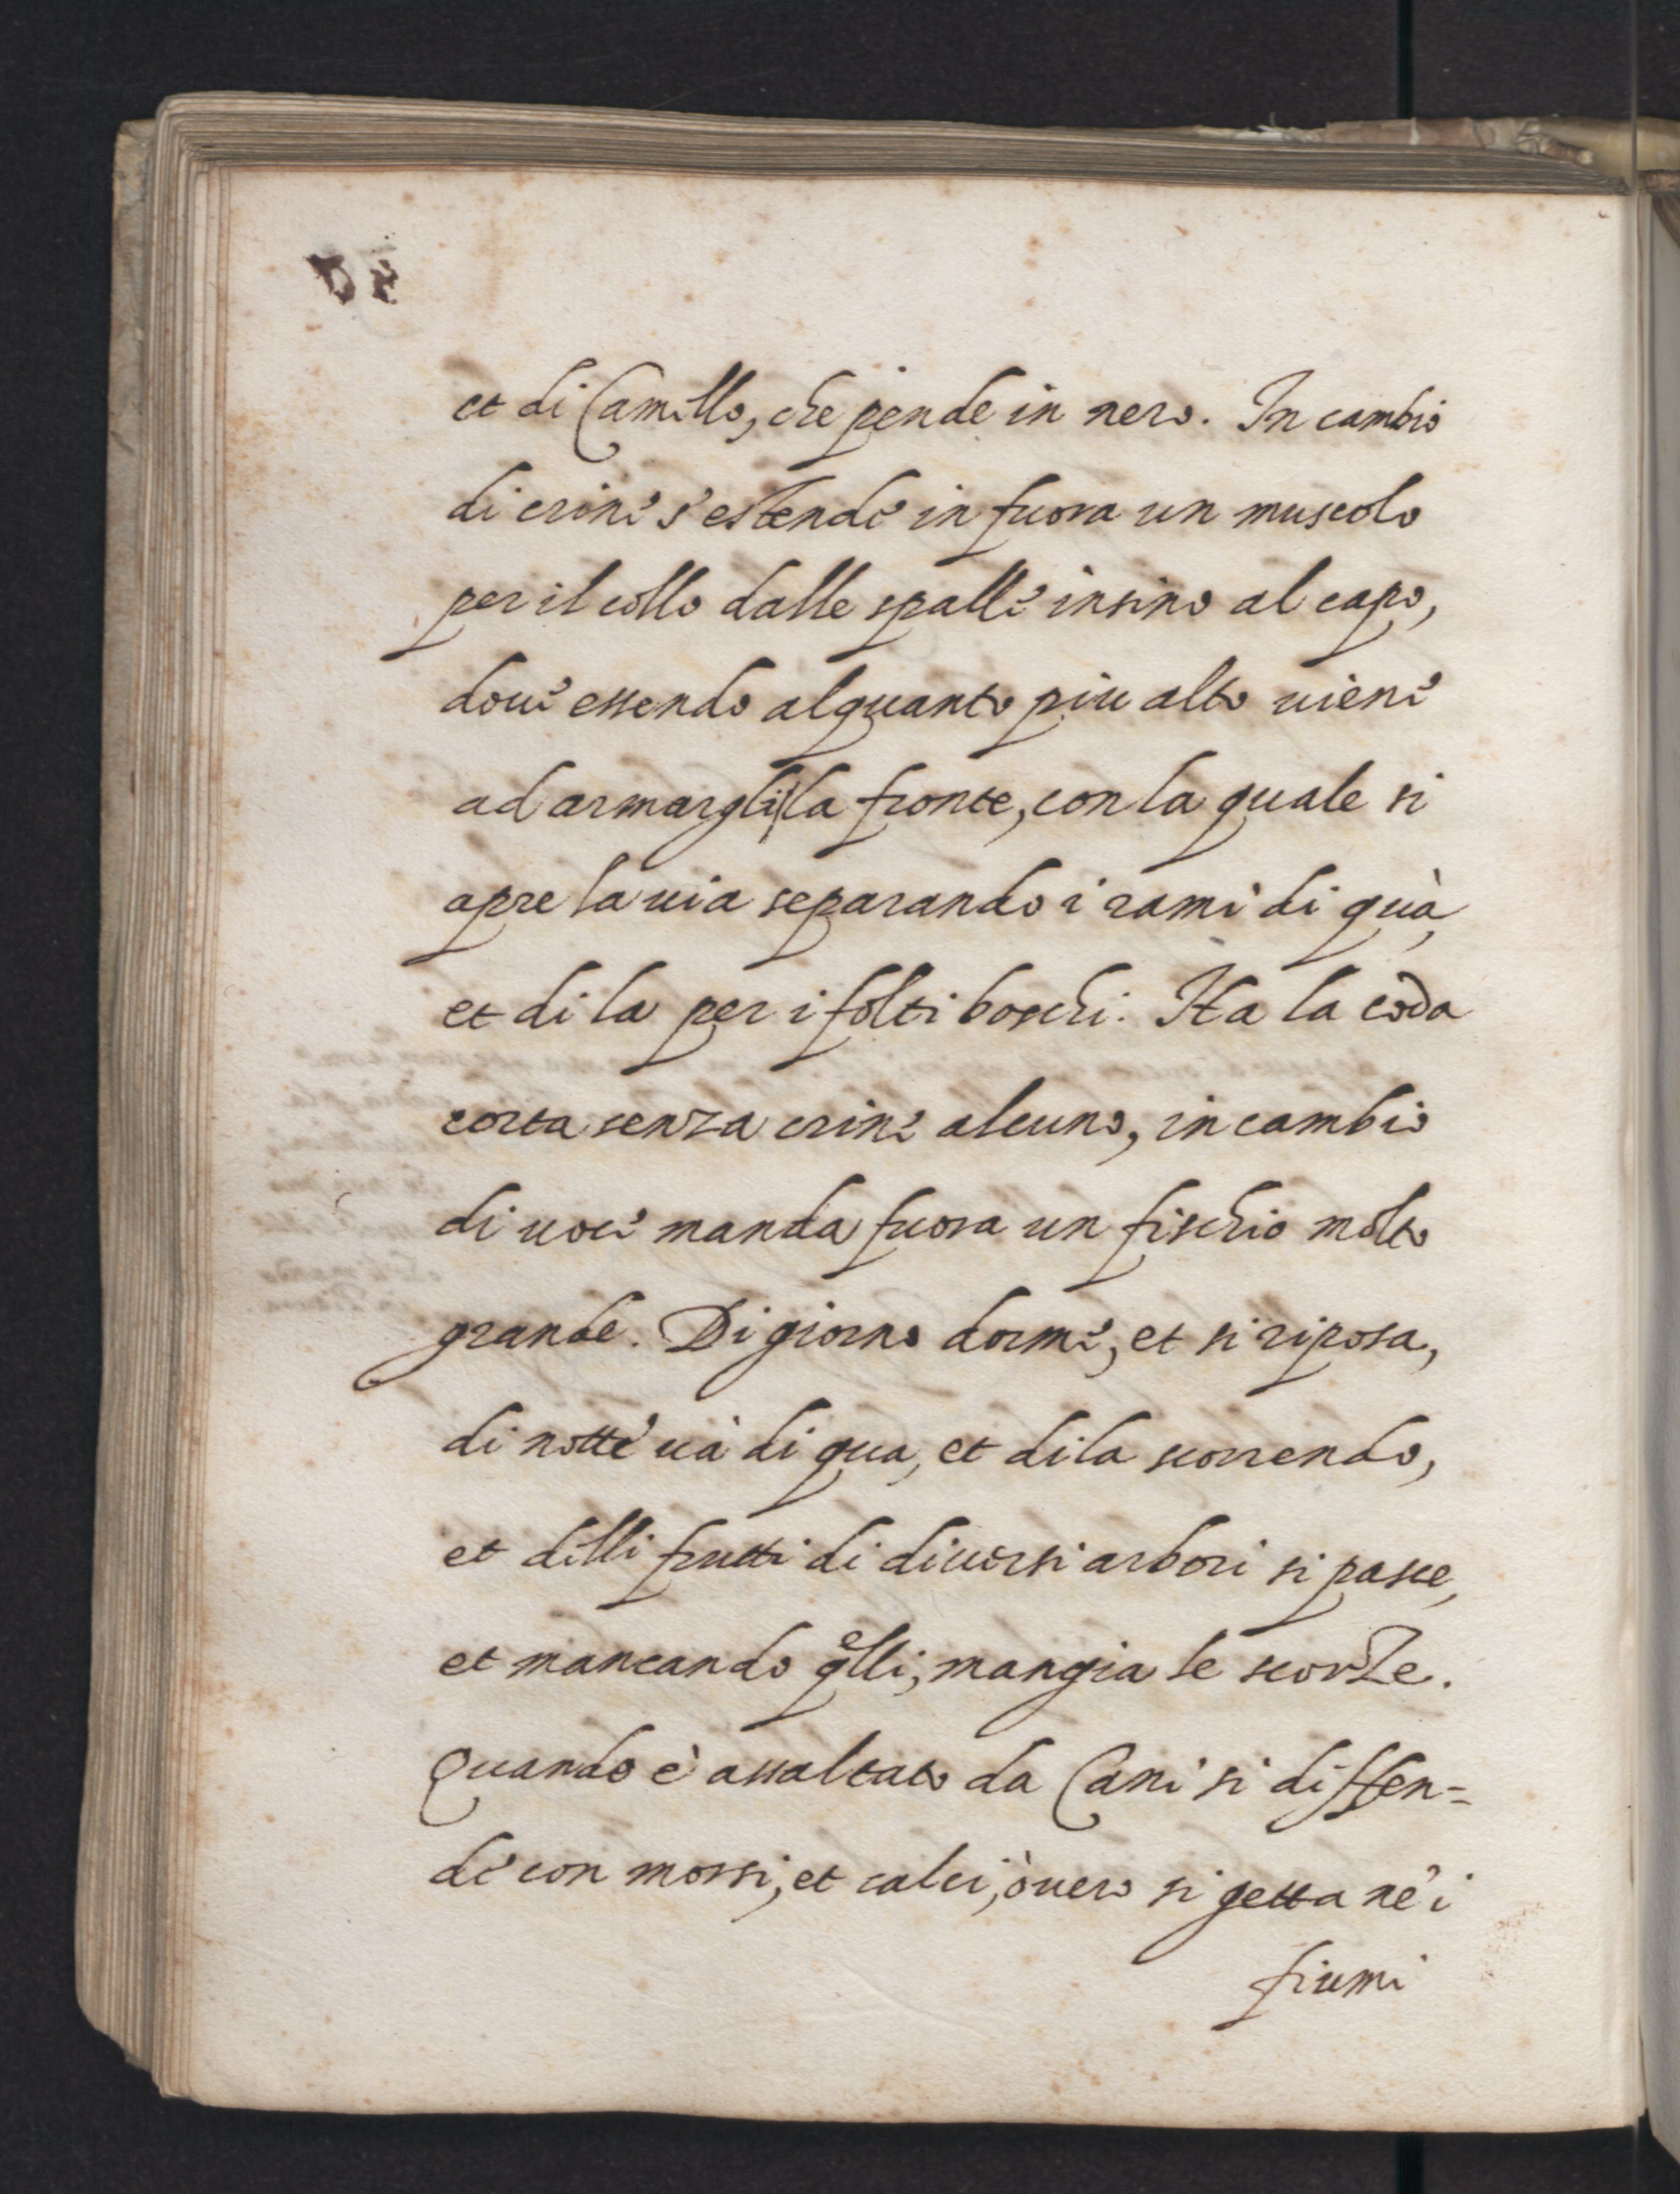 et di Camillo, che pende in nero. In cambio
di crine s'estende in fuora un muscolo
per il collo dalle spalle insino al capo,
doue essendo alquanto piu alto uiene
ad armargli la fronte, con la quale si
apre la uia separando i rami di quà,
et di la per i folti boschi. Ha la coda
corta senza crine alcuno, in cambio
di uoce manda fuora un fischio molto
grande. Di giorno dorme, et si riposa,
di notte uà di qua, et di la scorrendo,
et delli frutti di diuersi arbori si pasce,
et mancando q̃lli, mangia le scorze.
Quando è assaltato da Cani si diffen=
de con morsi, et calci, òuero si getta ne'i
fiumi